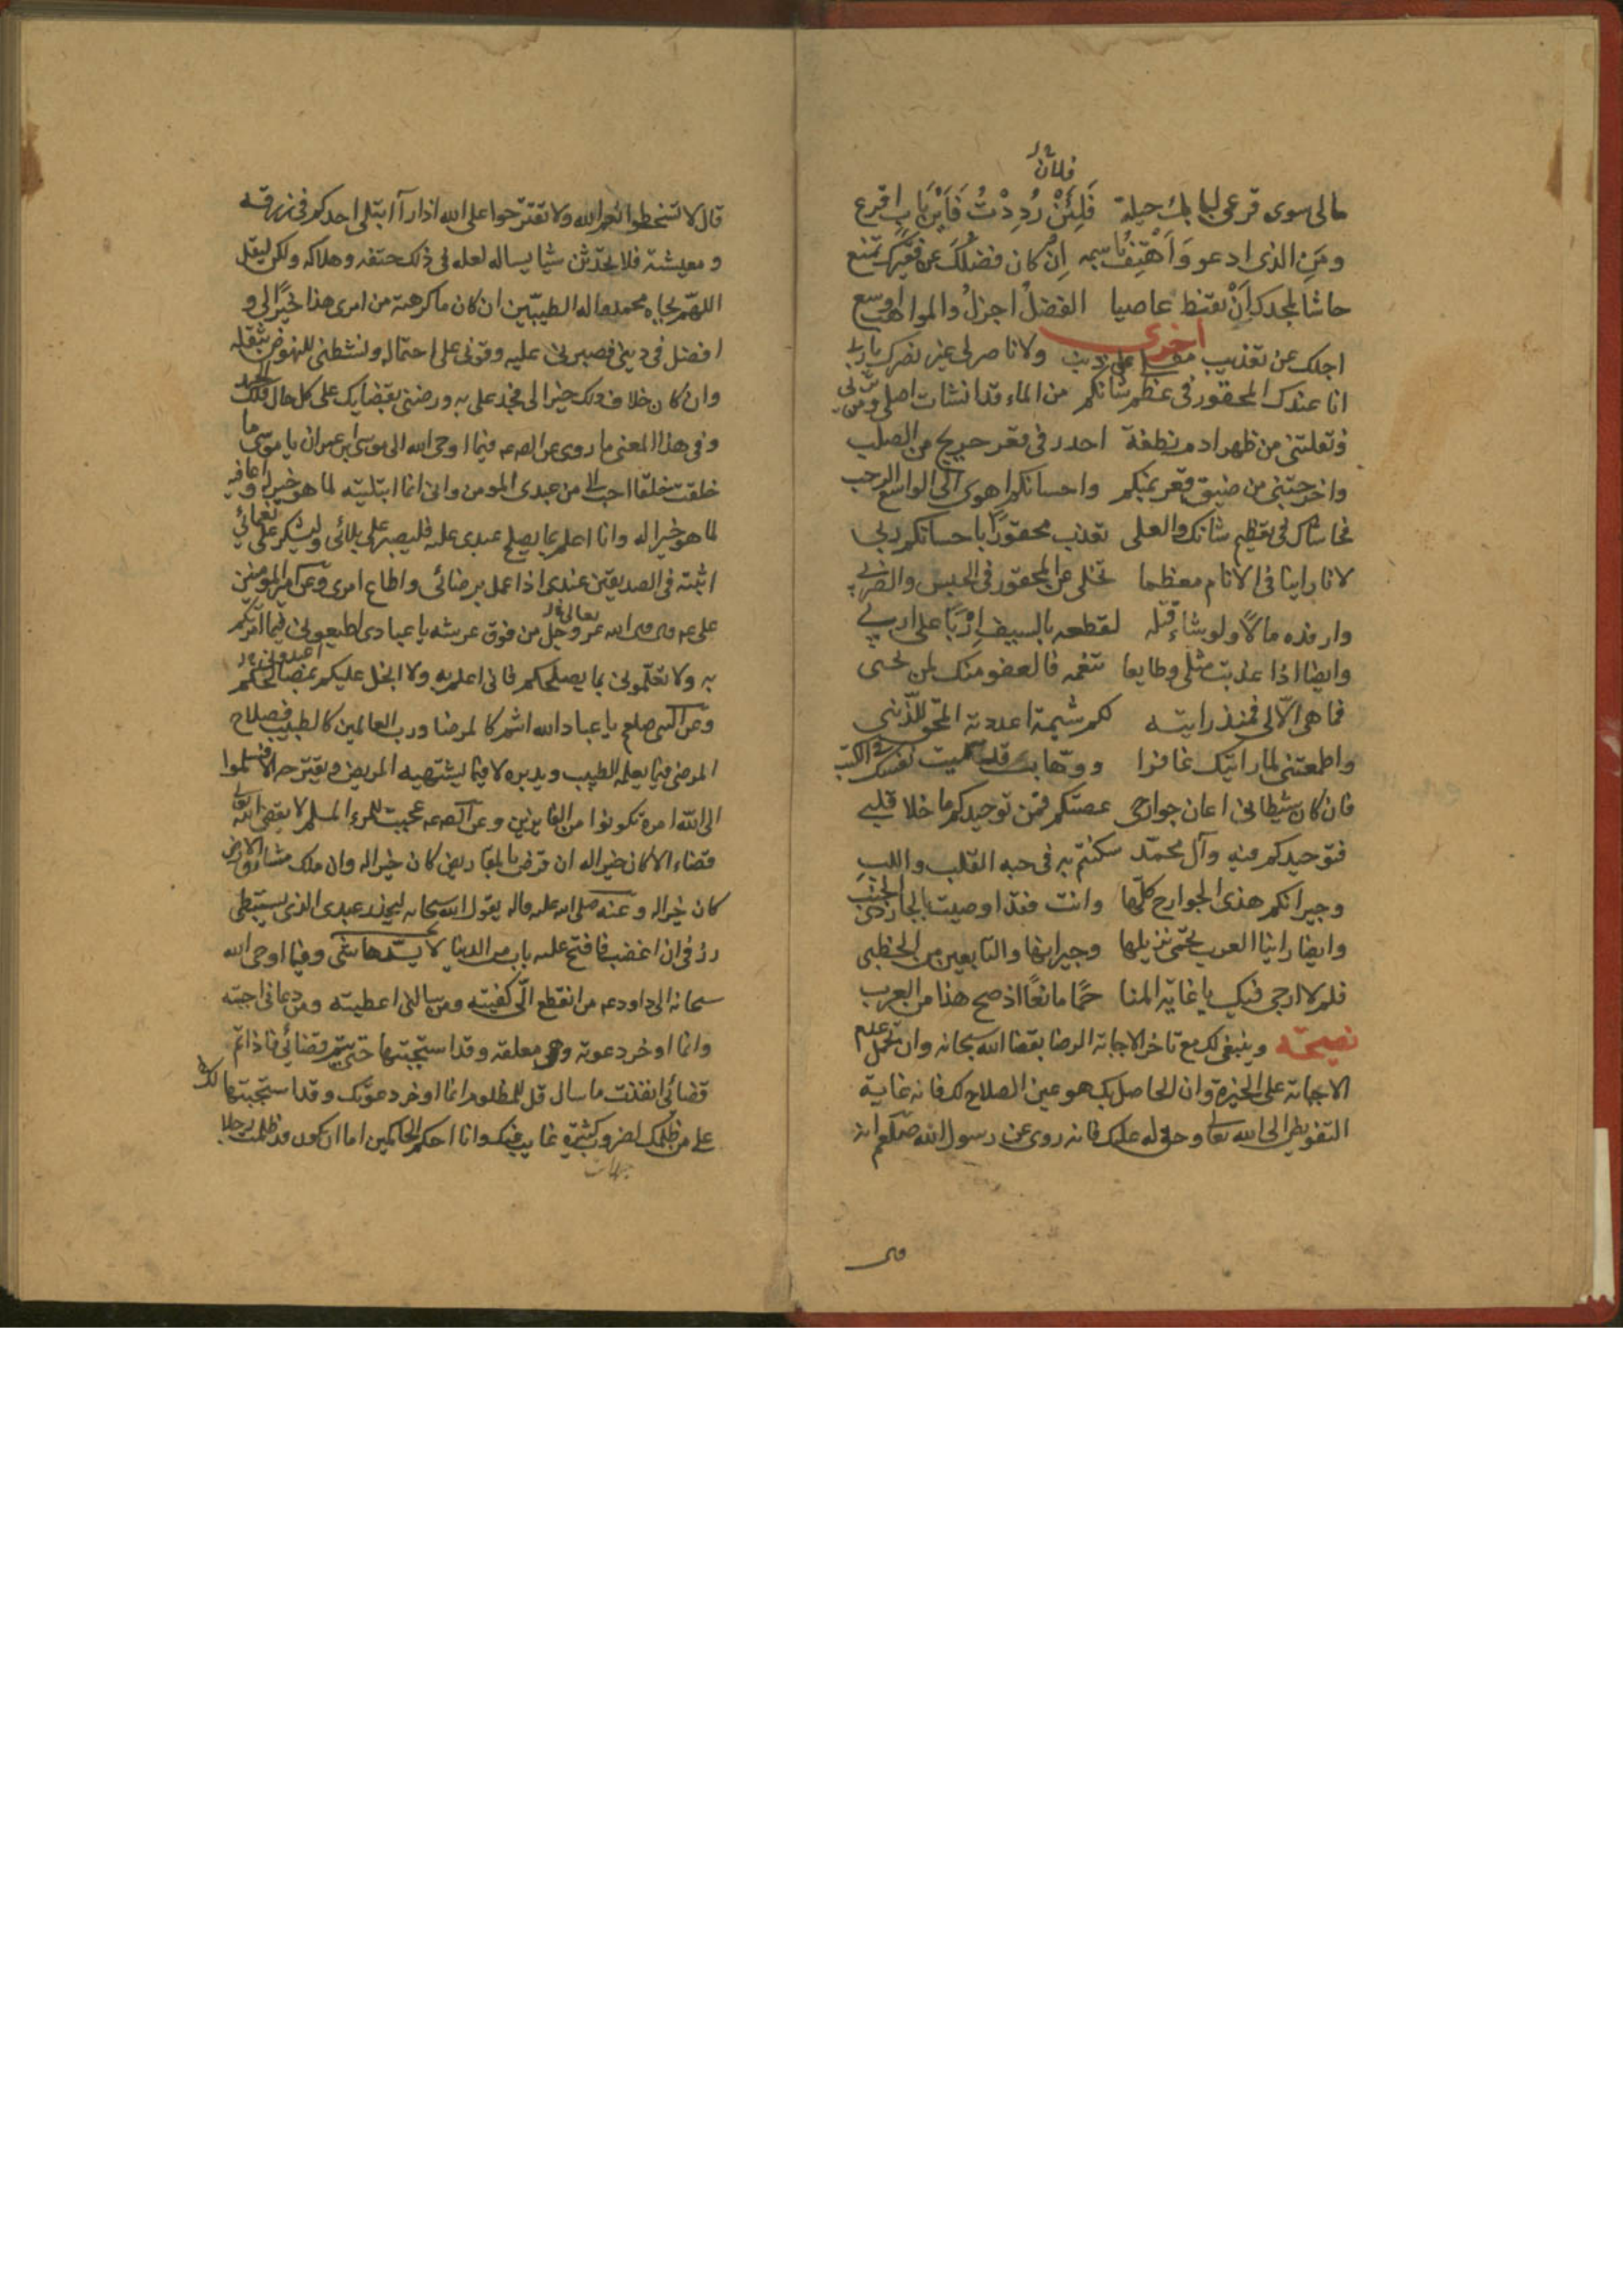 فلان
مالى سوى قرعى لبابك حيلة فَلَئِنْ رُدِدْتُ فَاَىَّ بَابٍ اقرع
ومَنِ الذى ادعو وَاَهْتِفُ باسمه اِنْ كان فضلُكَ عن فقيرك تمنع
حاشا لمجدك اَنْ تقنط عاصيا الفضلُ اجزلُ والمواهب اوسع
اخرى
اجلك عن تعذيب مثلى على ذنبى ولا ناصر لى غير نصرك يا ربى
انا عندك المحقور فى عظم شانكم من الماء قد انشات اصلى ومن ترب
ونقلتنى من ظهر ادم نطفة احدر فى قعر حريج من الصلب
واخرجتنى من ضيق قعر بمنكم واحسانكم اهوى الى الواسع الرحب
فحاشاك فى تعظيم شانك والعلى تعذب محقورا باحسانكم ربى
لانا راينا فى الانام معظما تخلى عن المحقور فى الحبس والضرب
وارفده مالا ولو شاء قتله لقطعه بالسيف اِرْبًا على ارب
وايضا اذا عذبت مثلى وطايعا تنعمه فالعفو منك لمن
فما هى الا لى فمنذ رايته لكم شيمة اعددته المحو للذنب
واطمعتنى لما رايتك غافرا ووهابا قد سميت نفسك فى الكتب
فان كان شيطانى اعان جوارحى عصتكم فمن توحيدكم ما خلا قلبى
فتوحيدكم فيه وآل محمد سكنتم به فى حبه القلب واللب
وجيرانكم هذى الجوارح كلها وانت فقد اوصيت بالجار ذى الجنب
وايضا راينا العرب تحمى نزيلها وجيرانها والتابعين من الخطب
فلم لا ارجى فيك يا غاية المنا حمًا مانعًا اذ صح هذا من العرب
نصيحة وينبغى لك مع تاخر الاجابة الرضا بقضا الله سبحانه وان تحمل عدم
الاجابة على الخيرة وان الحاصل بك هو عين الصلاح لك فانه غاية
التفويض الى الله تعالى وحق له عليك فانه روى عن رسول الله صلعم انه
قال لا تسخطوا نعم الله ولا تقترحوا على الله اذا ابتلى احدكم فى رزقه
ومعيشته فلا يحدثن شيا يساله لعله فى ذلك حتفه وهلاكه ولكن ليقل
اللهم بجاه محمد واله الطيبين ان كان ما كرهته من امرى هذا خيرًا لى و
افضل فى دينى فصبرنى عليه وقونى على احتماله ونشطنى للنهوض بثقله
وان كان خلاف ذلك خيرا لى فجد على به ورضنى بقضايك على كل حال فلك الحمد
وفى هذا المعنى ما روى عن الصه عه فيما اوحى الله الى موسى ابن عمران يا موسى ما
خلقت خلقا احب الى من عبدى المومن وانى انما ابتليته لما هو خير له واعافيه
لما هو خير له وانا اعلم بما يصلح عبدى عليه فليصبر على بلائى وليشكر على نعمائى
اثبته فى الصديقين عندى اذا عمل برضائى واطاع امرى وعن امير المومنين
على عه قال قال الله عز وجل من فوق عرشه يا عبادى اطيعونى فيما امرتكم
به ولا تعلمونى بما يصلحكم فانى اعلم به ولا ابخل عليكم بمصالحكم
وعن النبى صلعم يا عباد الله انتم كالمرضا ورب العالمين كالطبيب فصلاح
المرضى فيما يعلمه الطبيب ويدبره لا فيما يشتهيه المريض ويقترحه الا فسلموا
الى الله امره تكونوا من الفايزين وعن الصه عه عجبت للمرء المسلم لا يقضى الله
قضاء الا كان خيرا له ان قرض بالمقاريض كان خيرا له وان ملك مشارق الارض
كان خيرا له وعنه صلى الله عليه واله يقول الله سبحانه ليحذر عبدى الذى يستبطى
رزقى ان اغضب فافتح عليه باب من الدنيا لا يسدها شى وفيما اوحى الله
سبحانه الى داود عه من انقطع الى كفيته ومن سالنى اعطيته ومن دعانى اجبته
وانما اوخر دعوته وهى معلقه وقد استجبتها حتى يتم قضائى فاذا تم
قضائى انفذت ما سال قل للمظلوم انما اوخر دعوتك وقد استجبتها لك
على من ظلمك لضروب كثيرة غابت عنك وانا احكم الحاكمين اما ان تكون قد ظلمت رجلا
قال